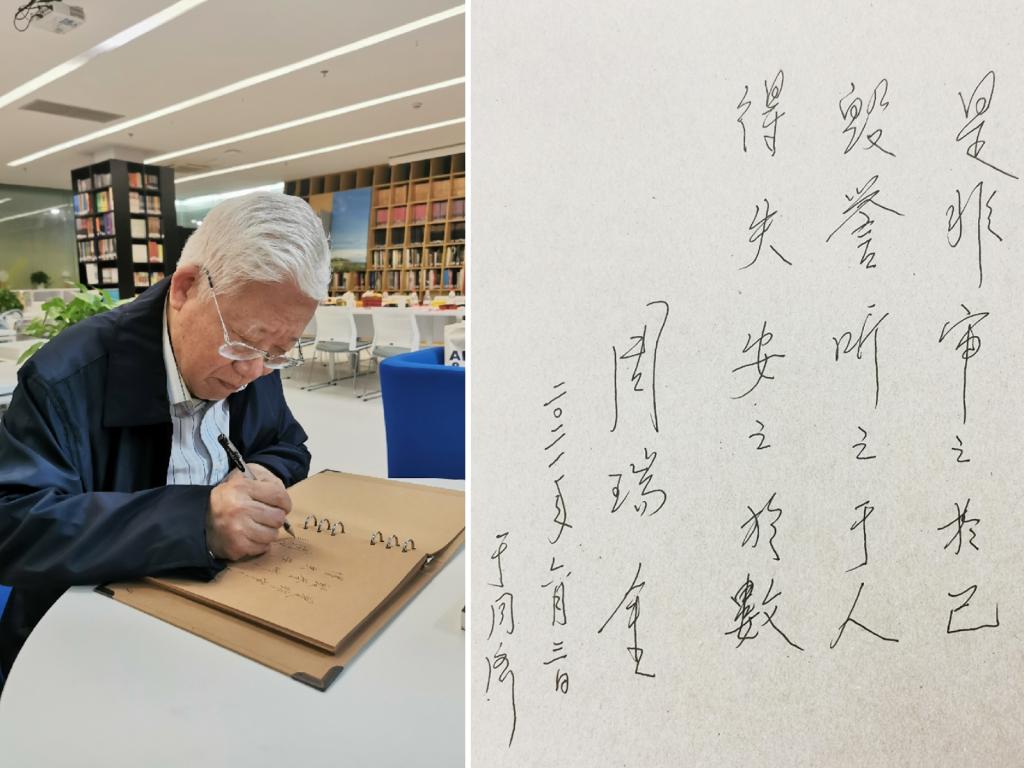 是非审之於己
毁誉听之于人
得失安之於數
周瑞金
二〇二一年六月三日
于同济